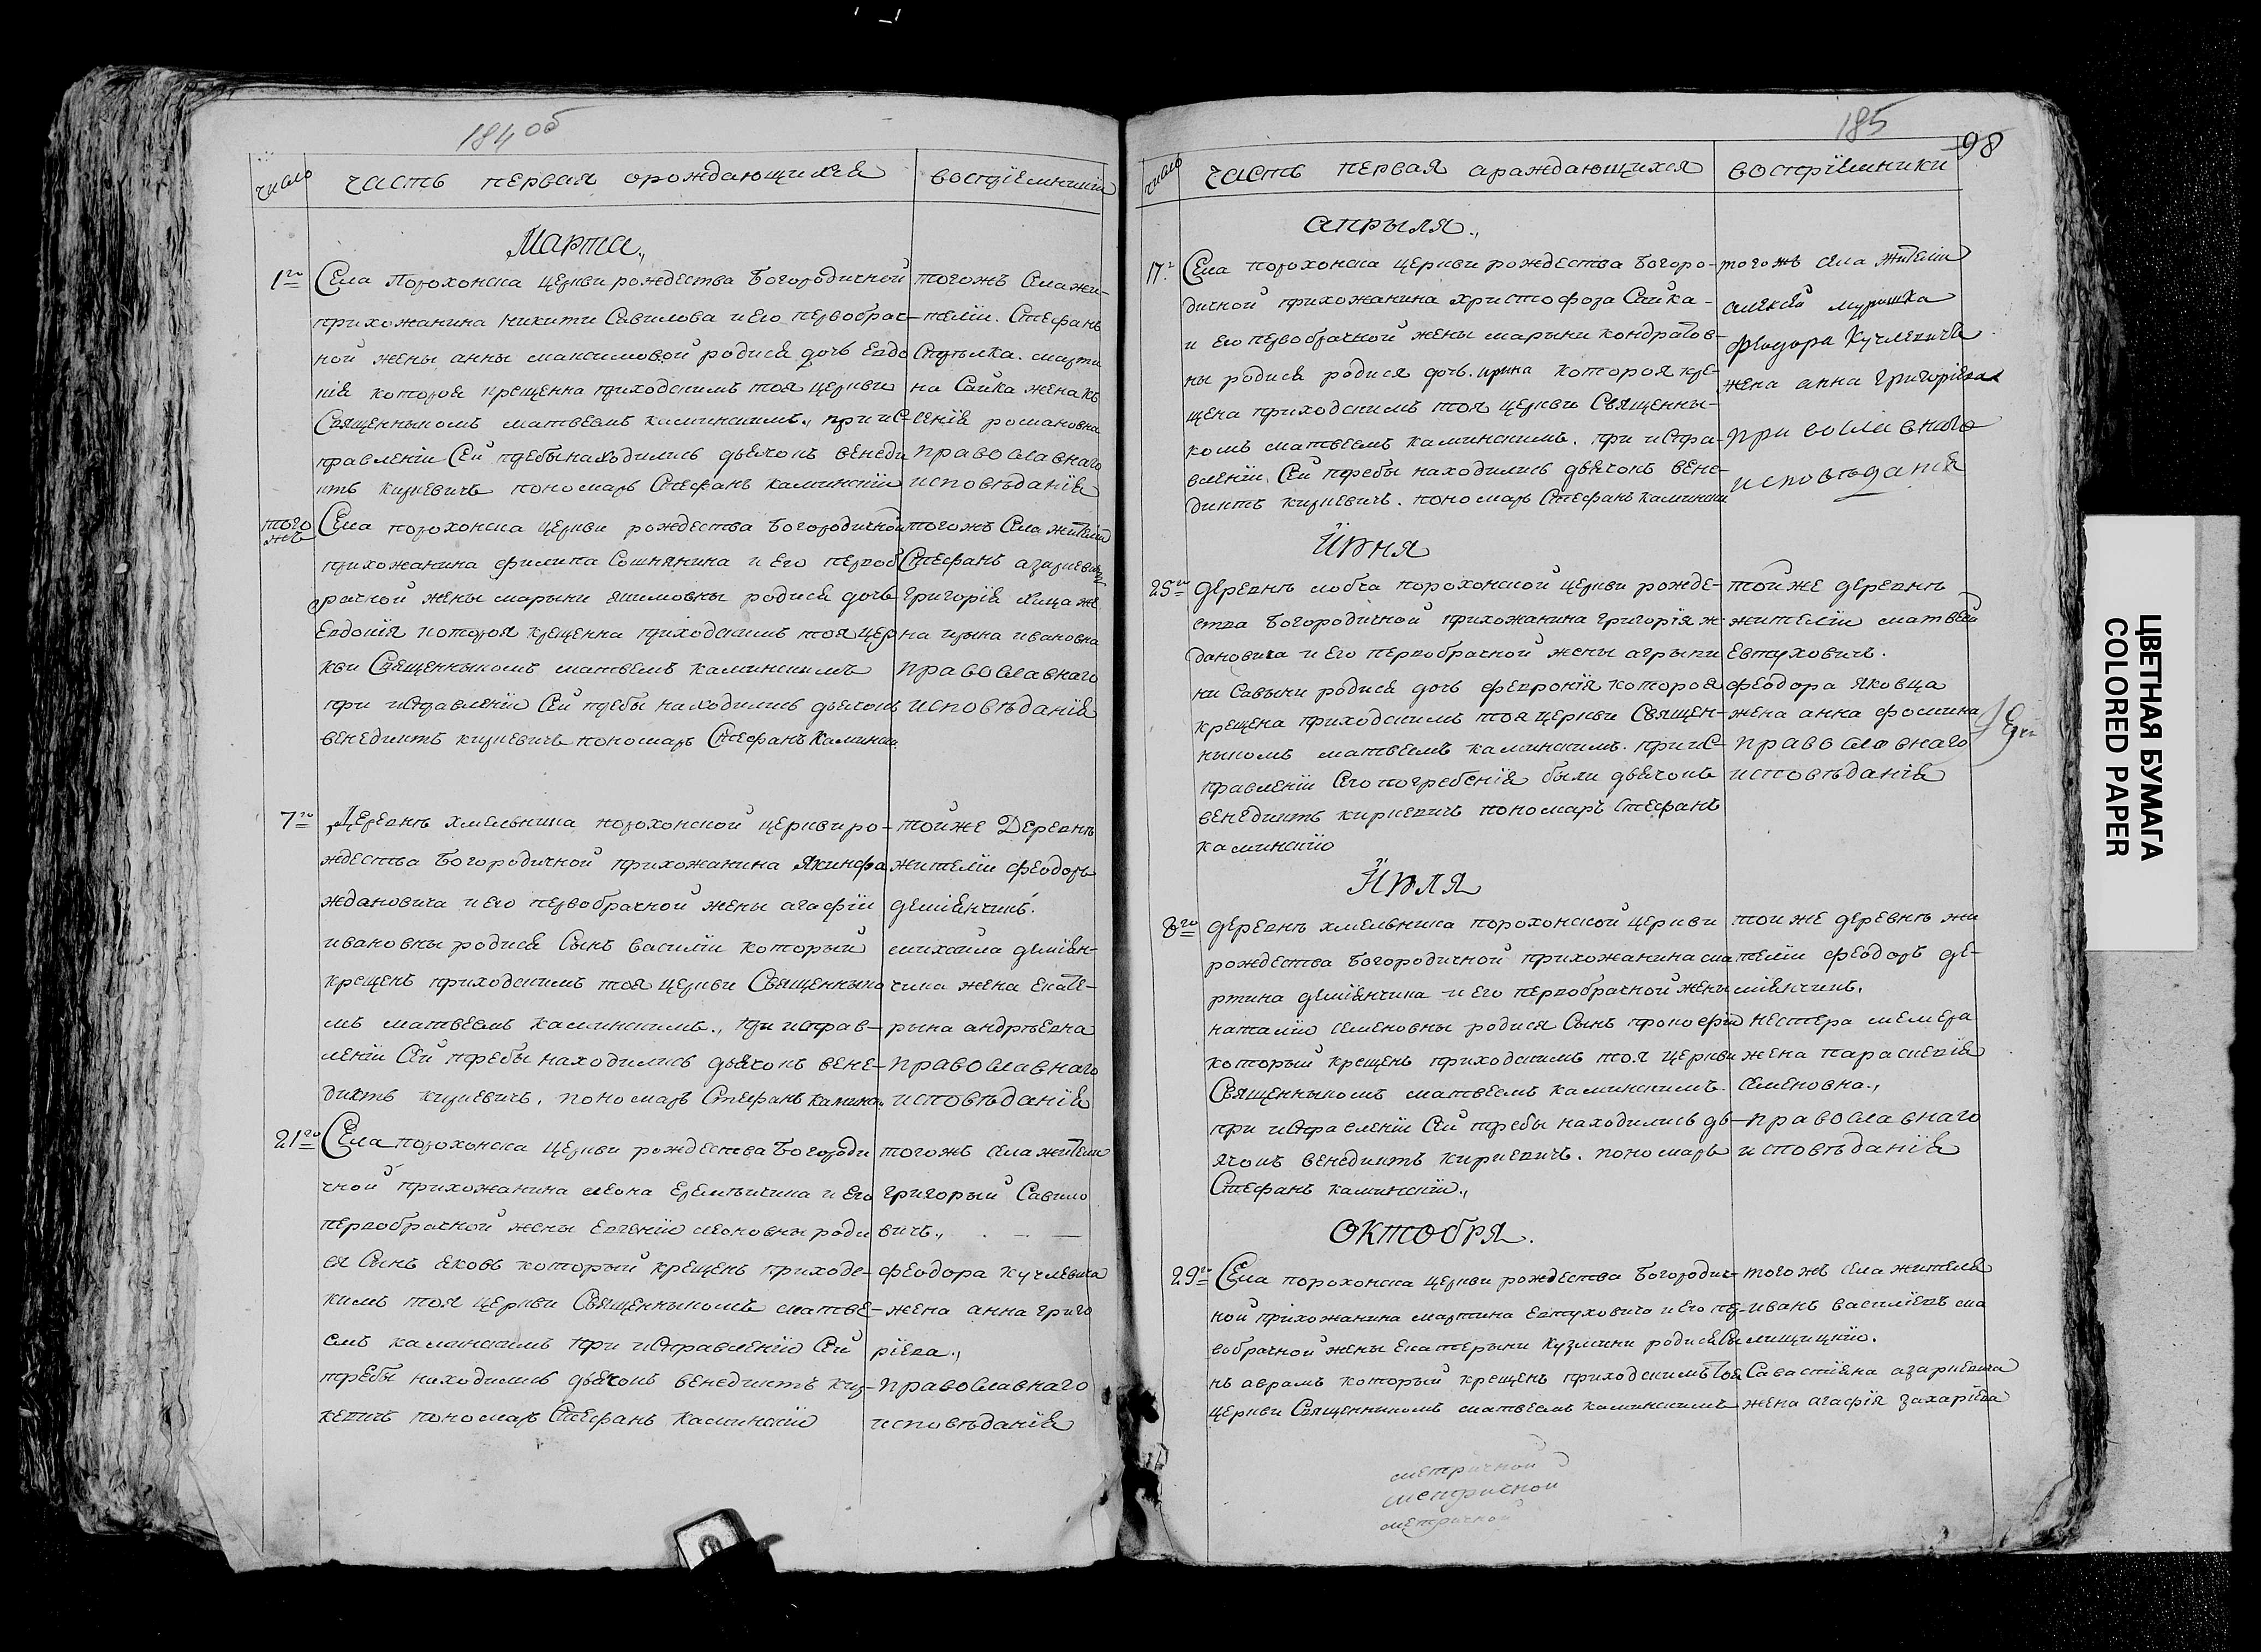 184 об
число
часть первая орождающихся
воспріемники
Марта.,
1го
Села Порохонска церкви рождества Богородичной
прихожанина никити Савилова и его первобрач-
ной жены анны максимовой родися дочь Евдо
кія которая крещенна приходскимъ тоя церкви
Священныкомъ матвеемъ каминскимъ., при ис-
правленіи Сей требы находились дьячокъ венеди
итъ киркевичъ пономарь Стефанъ каминскій
тогожъ Села жи-
теліи. Стефанъ
марти
на Сайка жена кс
сенія романовна
православнаго
исповѣданія
того
же
Села порохонска церкви рождества Богородичной
прихожанина филипа Сошнянина и его первоб
рачной жены марыни якимовны родися дочь
Евдокія которая крещенна приходскимъ тоя цер
кви Священныкомъ матвеемъ каминскимъ
при исправленіи Сей требы находились дьячокъ
венедиктъ киркевичъ пономарь Стефанъ Каминск
тогожъ Села жителіи
Стефанъ азаркевичъ
григорія хица же
на ирына ивановна
православнаго
исповѣданія
7го
Деревнѣ хмельника порохонской церкви ро-
ждества Богородичной прихожанина Якинфа
ждановича и его первобрачной жены агафіи
ивановны родися Сынъ василіи который
крещенъ приходскимъ тоя церкви Священныко
мъ матвеемъ каминскимъ., при исправ-
леніи Сей требы находились дьячокъ вене-
диктъ киркевичъ. пономарь Стефанъ Каминск.
тойже Деревнѣ
жителіи феодоръ
деміянчикъ.
михайла деміян-
чика жена Екате-
рына андрѣевна
православнаго
исповѣданія
21го
Села порохонска церкви рождества Богороди
чной прихожанина леона Еремѣичика и его
первобрачной жены Евгеніи леоновны роди
ся Сынъ яковъ который крещенъ приходс-
кимъ тоя церкви Священныкомъ матве-
емъ каминскимъ при исправленію Сей
требы находились дьячокъ венедиктъ кир-
кевичъ пономарь Стефанъ Каминскію
тогожъ Села жители
григорый Савило
вичъ.,
феодора кучлевича
жена анна григо
ріева.,
православнаго
исповѣданія
185
98
число
часть первая араждающихся
воспріемники
апрыля.,
17го
Села порохонска церкви рождества Богоро-
дичной прихожанина христофора Сайка-
и его первобрачной жены марыни кондратов-
ны родися родися дочь. ирина котороя кре-
щена приходскимъ тоя церкви Священны-
комъ матвеемъ каминскимъ. при испра-
вленіи. Сей требы находились дьячокъ вене-
диктъ киркевичъ. пономарь Стефанъ каминскіи
тогожъ села жителіи
алексѣй мурашка
феодора Кучлевича
жена анна григоріева
православнаго
исповѣданія
Іюня
25го
деревнѣ лобча порохонской церкви рожде-
ства Богородичной прихожанина григорія ж-
дановича и его первобрачной жены агрыпи
ни Савыни родися дочь февронія котороя
крещена приходскимъ тоя церкви Священ-
ныкомъ матвеемъ каминскимъ. при ис-
правленіи Сего погребенія были дьячокъ
венедиктъ киркевичъ пономаръ Стефанъ
каминскію
тойже деревнѣ
жителіи матвей
Евтуховичъ.
феодора Яковца
жена анна фомина
православнаго
исповѣданія
Июля
8го
деревнѣ хмельника порохонской церкви
рождества Богородичной прихожанина ма
ртина деміянчика и его первобрачной жены
наталію семеновны родися Сынъ прокофію
который крещенъ приходскимъ тоя церкви
Священныкомъ матвеемъ каминскимъ.
при исправленіи Сей требы находились дь-
ячокъ венедиктъ киркевичъ. пономарь
Стефанъ каминскіи.,
той же деревнѣ жи
теліи феодоръ де-
міянчикъ.
нестера мелеза
жена параскевія
Семеновна.,
православнаго
исповѣданія
Октобря.
29го
Села порохонска церкви рождества Богородич-
ной пріхожанина мартина Евтуховича и его пер-
вобрачной жены Екатерыни Кузмини родися Сы
нъ аврамъ который крещенъ приходскимъ тоя
церкви Священныкомъ матвеемъ каминскимъ
тогожъ села жителя
иванъ василіевъ сма
лищицкію.
Савастіяна азаркевича
жена агафія захаріева
метричной
метричной
метричной
ЦВЕТНАЯ БУМАГА
COLORED PAPER